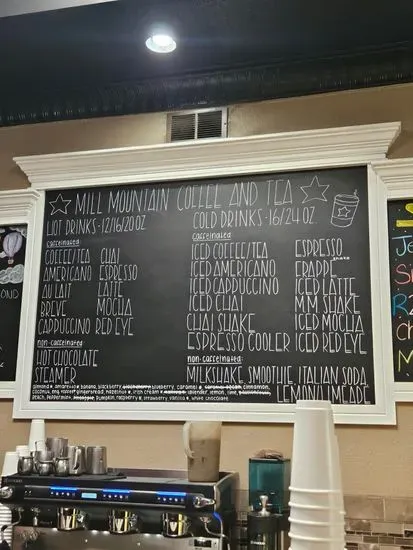 MILL MOUNTAIN COFFEE AND TEA
HOT DRINKS · 12/16/20 OZ
caffeinated:
COFFEE/TEA CHAI
AMERICANO ESPRESSO
AU LAIT LATTE
BREVE MOCHA
CAPPUCCINO RED EYE
non-caffeinated:
HOT CHOCOLATE
STEAMER
COLD DRINKS · 16/24 OZ
caffeinated:
ICED COFFEE/TEA ESPRESSO
ICED AMERICANO FRAPPE shake
ICED CAPPUCCINO ICED LATTE
ICED CHAI M.M. SHAKE
CHAI SHAKE ICED MOCHA
ESPRESSO COOLER ICED RED EYE
non-caffeinated:
MILKSHAKE SMOOTHIE ITALIAN SODA
LEMON/LIMEADE
almond, amaretto, banana, blackberry, blueberry, caramel, cinnamon,
coconut, gingerbread, hazelnut, irish cream, lavender, lemon, lime,
peach, peppermint, pumpkin, raspberry, strawberry, vanilla, white chocolate